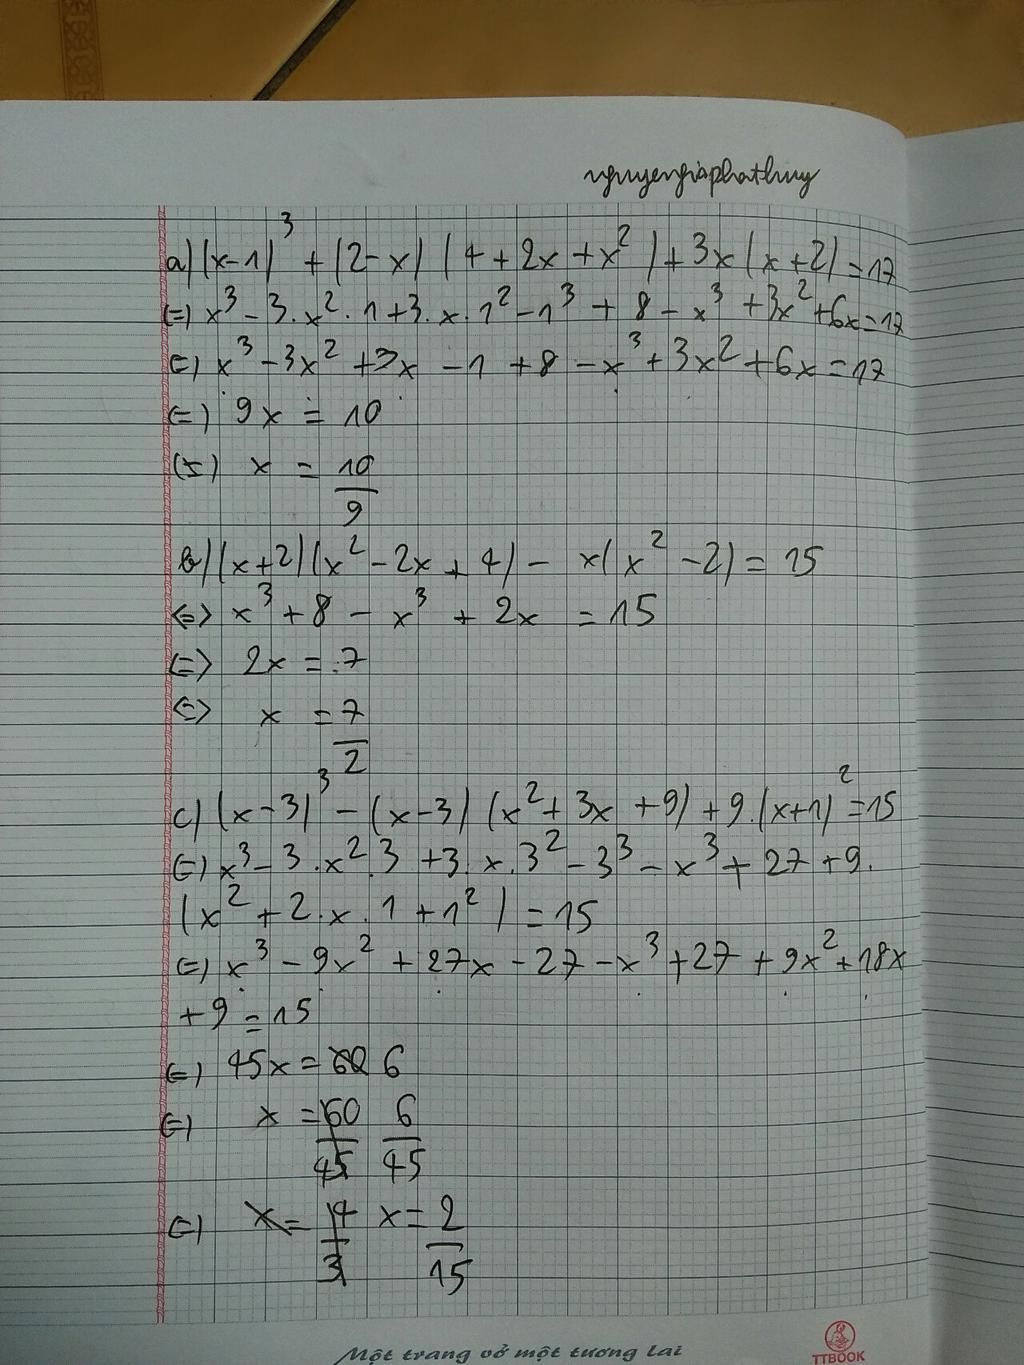 nguyengiaphathuy
a) (x-1)³ + (2-x) (4+2x+x²) + 3x(x+2) = 17
(=) x³ - 3.x².1 + 3.x.1² - 1³ + 8 - x³ + 3x² + 6x = 17
(=) x³ - 3x² + 3x - 1 + 8 - x³ + 3x² + 6x = 17
(=) 9x = 10
(=) x = 10/9
b) (x+2)(x² - 2x + 4) - x(x² - 2) = 15
<=> x³ + 8 - x³ + 2x = 15
(=> 2x = 7
<=> x = 7/2
c) (x-3)³ - (x-3) (x² + 3x + 9) + 9.(x+1)² = 15
(=) x³ - 3.x².3 + 3.x.3² - 3³ - x³ + 27 + 9.
(x² + 2.x.1 + 1²) = 15
(=) x³ - 9x² + 27x - 27 - x³ + 27 + 9x² + 18x
+ 9 = 15
(=) 45x = 6
(=) x = 60/45 6/45
(=) x = 4/3 x = 2/15
Một trang vở một tương lai
TTBOOK